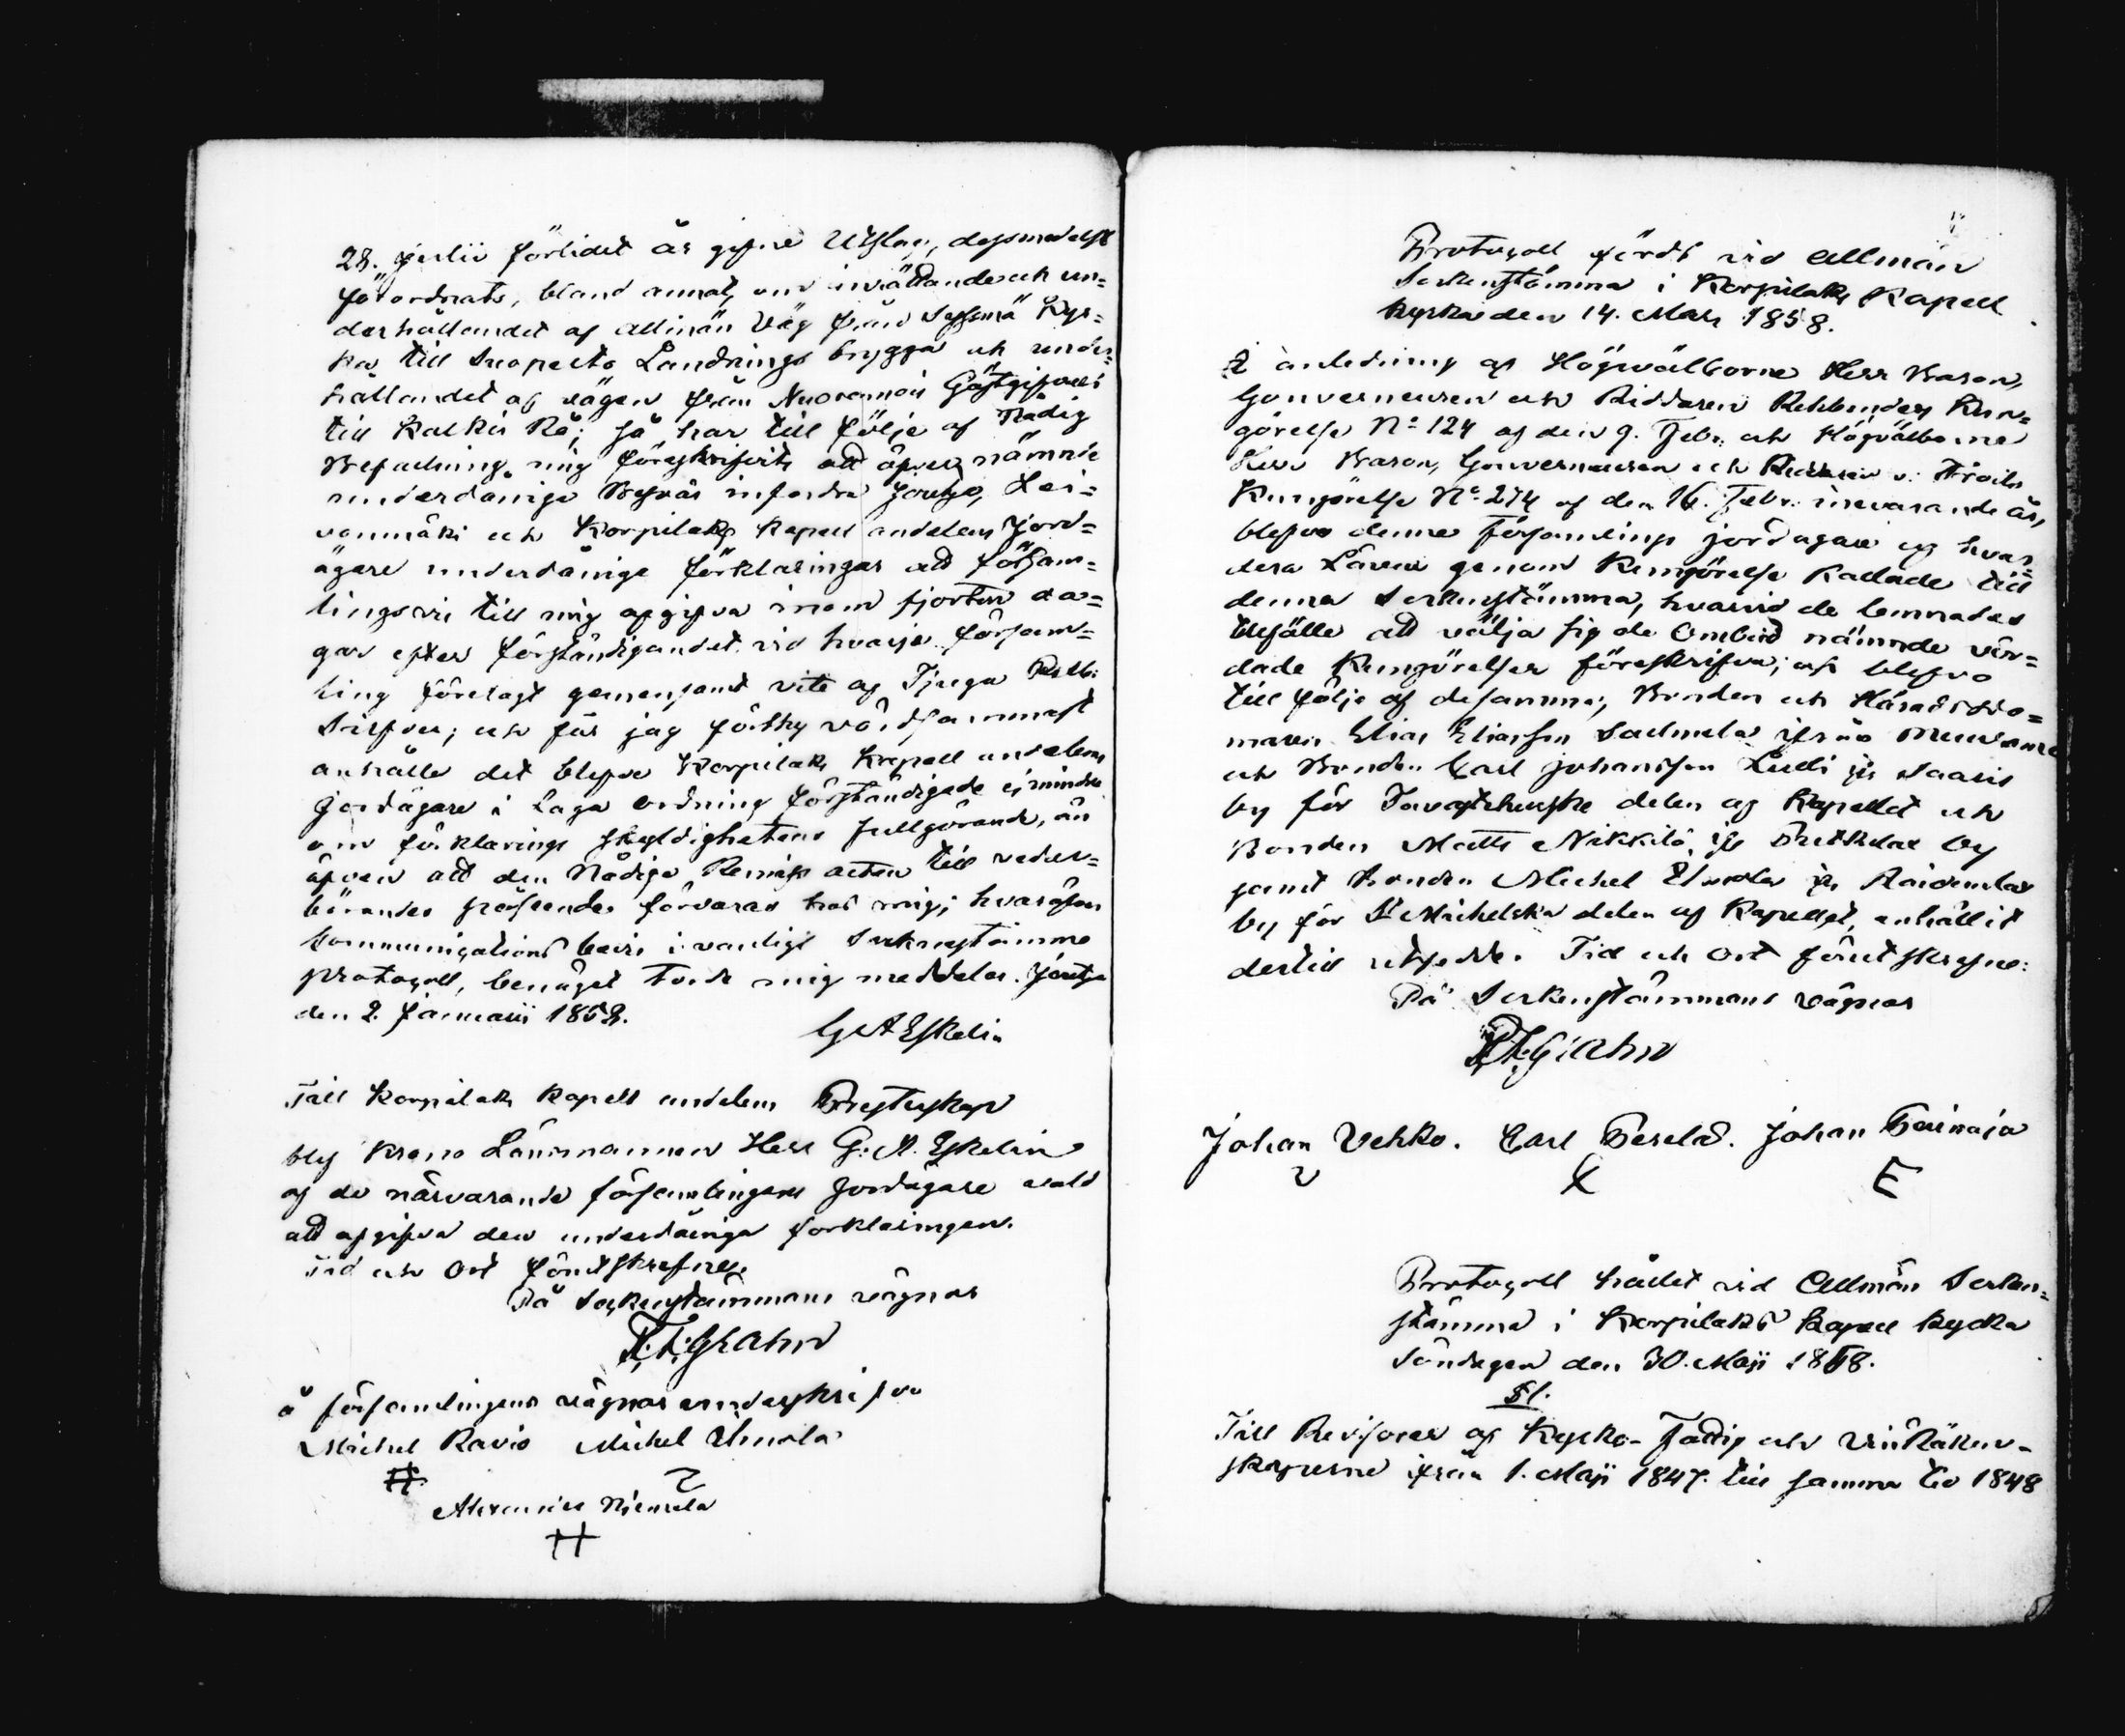 28. Julii förlidet år gifne Utslag, dessmedelst
förordnats, bland annat, om inrättande och un=
derhållandet af allmän väg från Sysmä Kyr=
ka till Suopelto Landnings brygga och under=
hållandet af vägen från Nuoramois Gästgifveri
till Kalkis Rå; så har till följe af Nådig
Befallning mig föreskrifvits att öfver nämnde
underdåniga Besvär infordra Joutsa, Lei=
vonmäki och Korpilaks Kapell andelens Jord=
ägare underdåniga förklaringar att försam=
lingsvis till mig afgifva inom fjorton da=
gar efter förständigandet vid hvarje försam=
ling förelagt gemensamt vite af Tjugo Rub:
Silfver; och får jag förthy vördsammast
anhålla det blefve Korpilaks Kapell andelens
Jordägare i Laga ordning förständigade ej mindre
om förklarings skyldighetens fullgörande, än
äfven att den Nådiga Remiss acten till veder=
börandes påseende förvaras hos mig; hvaröfver
kommunications bevis i vanligt Sockenstämmo
protocoll, benäget torde mig meddelas. Joutsa
den 2. Januarii 1858.
G A Eskelin
Till Korpilaks Kapell andelens Presterskap
blef Krono Länsmannen Herr G. A. Eskelin
af de närvarande församlingens Jordägare vald
att afgifva den underdåniga förklaringen.
Tid och Ort förutskrefne.
På Sockenstämmans vägnar
Grahn
å församlingens vägnar underskrifva
Michel Ravio Michel Uhnola
Niemelä
Protocoll fördt vid Allmän
Sockenstämma i Korpilaks Kapell
kyrka den 14. Mars 1858.
I anledning af Högvälborne Herr Baron,
Gouverneuren och Riddaren Rehbinders Kun=
görelse No 124 af den 9. Febr. och Högvälborne
Herr Baron, Gouverneuren och Riddaren v. Troils
Kungörelse No 274 af den 16. Febr. innevarande år,
blefvo denne församlings jordägare af hvar=
dera Länen genom Kungörelse kallade till
denna Sockenstämma, hvarvid de lemnades
tillfälle att välja sig de Ombud nämnde vör=
dade Kungörelser föreskrifva; och blefvo
till följe af desamma, Bonden och Häradsdo=
maren Elias Eliasson från
och Bonden Carl Johansson från Saaris
by för Tavastehuska delen af Kapellet och
Bonden Matts Nikkilä från by
samt Bonden Michel från
by för St Michelska delen af Kapellet, enhälligt
dertill utsedde. Tid och Ort förutskrefne:
På Sockenstämmans vägnar
Grahn
Johan Vehko. Carl Perälä. Johan
Protocoll hållet vid Allmän Socken=
stämma i Korpilaks Kapell kyrka
Söndagen den 30. Maji 1858.
§1.
Till Revisorer af Kyrko- Fattig och Räken-
skaperne ifrån 1. Maji 1847. till samma tid 1848